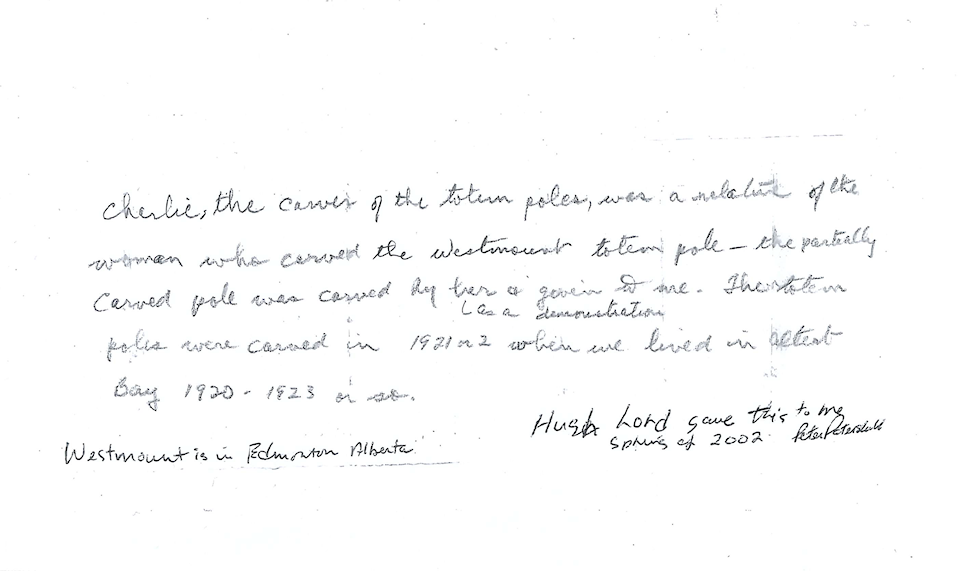 Charlie, the carver of the totem poles, was a relative of the
woman who carved the Westmount totem pole – the partially
carved pole was carved by her & given to me. These totem
(as a demonstration
poles were carved in 1921 or 2 when we lived in Alert
Bay 1920 - 1923 or so.
Hugh Lord gave this to me
Spring of 2002 Peter
Westmount is in Edmonton Alberta